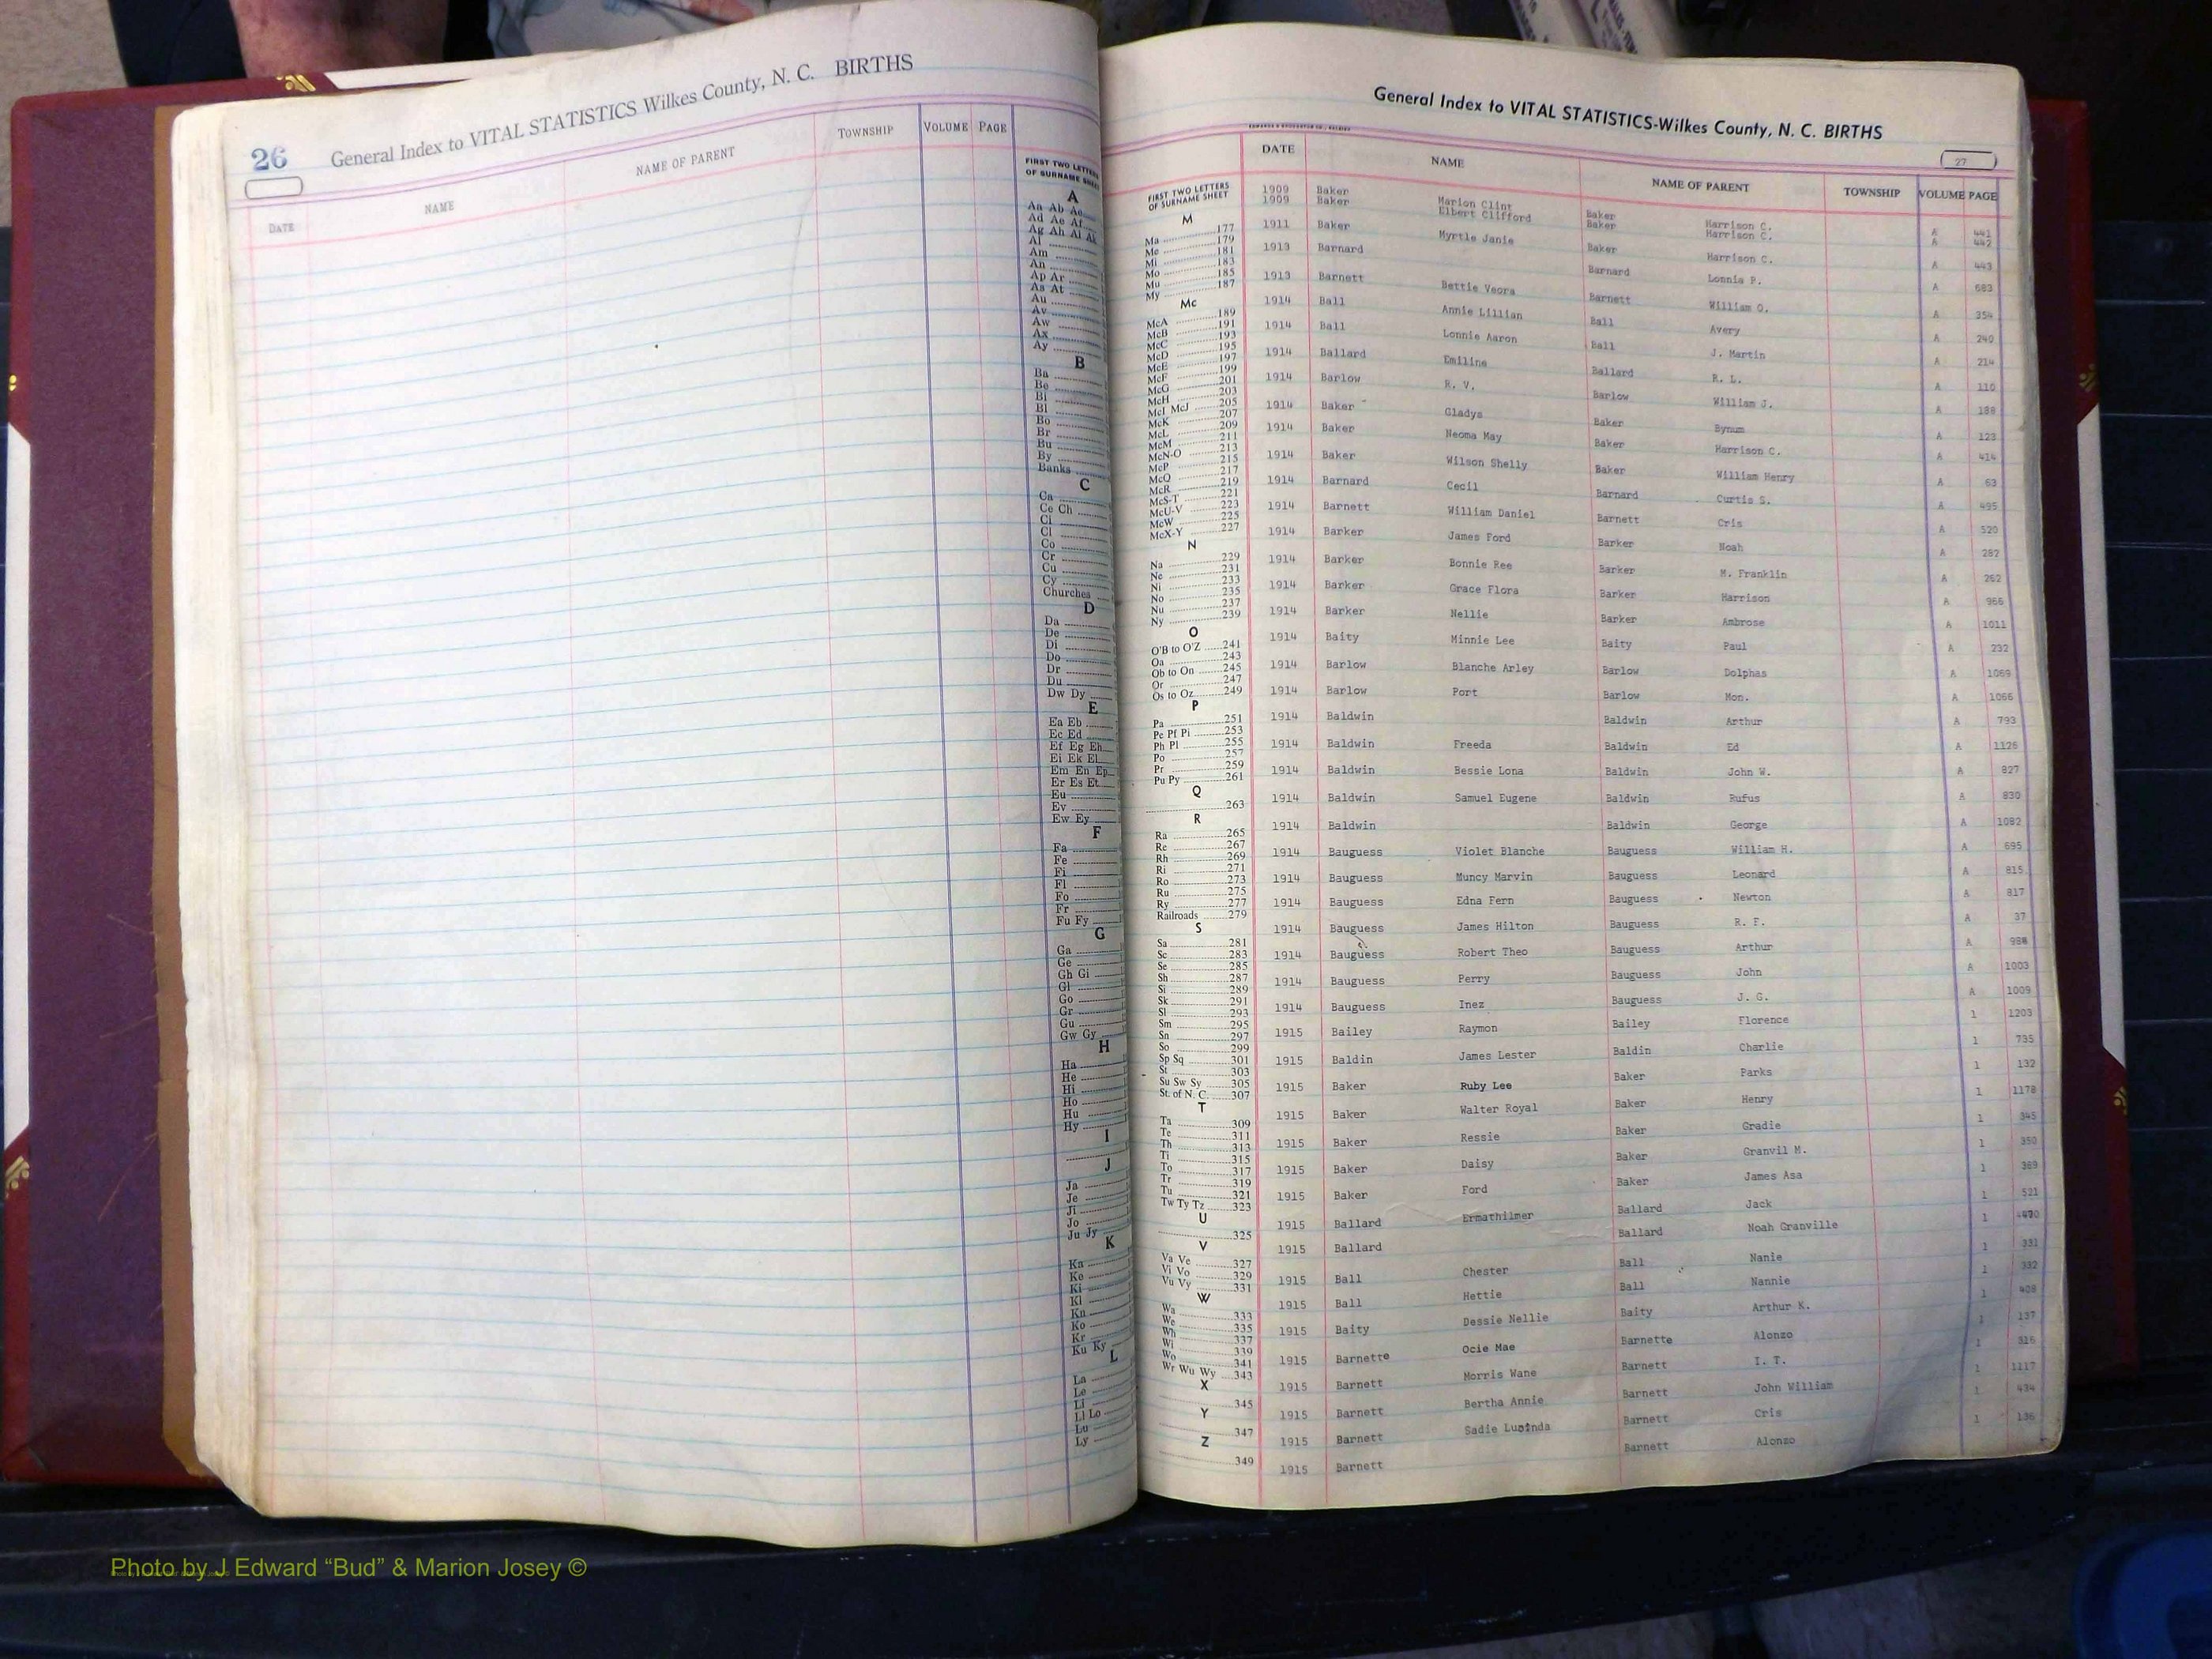 26
General Index to VITAL STATISTICS Wilkes County, N. C. BIRTHS
DATE NAME NAME OF PARENT TOWNSHIP VOLUME PAGE
FIRST TWO LETTERS
OF SURNAME SHEET
A
Aa Ab Ac
Ad Ae Af
Ag Ah Ai Ak
Al
Am
An
Ap Ar
As At
Au
Av
Aw
Ax
Ay
B
Ba
Be
Bi
Bl
Bo
Br
Bu
By
Banks
C
Ca
Ce Ch
Ci
Cl
Co
Cr
Cu
Cy
Churches
D
Da
De
Di
Do
Dr
Du
Dw Dy
E
Ea Eb
Ec Ed
Ef Eg Eh
Ei Ek El
Em En Ep
Er Es Et
Eu
Ev
Ew Ey
F
Fa
Fe
Fi
Fl
Fo
Fr
Fu Fy
G
Ga
Ge
Gh Gi
Gl
Go
Gr
Gu
Gw Gy
H
Ha
He
Hi
Ho
Hu
Hy
I
J
Ja
Je
Ji
Jo
Ju Jy
K
Ka
Ke
Ki
Kl
Kn
Ko
Kr
Ku Ky
L
La
Le
Li
Ll Lo
Lu
Ly
General Index to VITAL STATISTICS-Wilkes County, N. C. BIRTHS
27
DATE NAME NAME OF PARENT TOWNSHIP VOLUME PAGE
FIRST TWO LETTERS
OF SURNAME SHEET
M
Ma 177
Me 179
Mi 181
Mo 183
Mu 185
My 187
Mc
McA 189
McB 191
McC 193
McD 195
McE 197
McF 199
McG 201
McH 203
McI McJ 205
McK 207
McL 209
McM 211
McN-O 213
McP 215
McQ 217
McR 219
McS-T 221
McU-V 223
McW 225
McX-Y 227
N
Na 229
Ne 231
Ni 233
No 235
Nu 237
Ny 239
O
O'B to O'Z 241
Oa 243
Ob to On 245
Or 247
Os to Oz 249
P
Pa 251
Pe Pf Pi 253
Ph Pl 255
Po 257
Pr 259
Pu Py 261
Q
263
R
Ra 265
Re 267
Rh 269
Ri 271
Ro 273
Ru 275
Ry 277
Railroads 279
S
Sa 281
Sc 283
Se 285
Sh 287
Si 289
Sk 291
Sl 293
Sm 295
Sn 297
So 299
Sp Sq 301
St 303
Su Sw Sy 305
St. of N. C. 307
T
Ta 309
Te 311
Th 313
Ti 315
To 317
Tr 319
Tu 321
Tw Ty Tz 323
U
325
V
Va Ve 327
Vi Vo 329
Vu Vy 331
W
Wa 333
We 335
Wh 337
Wi 339
Wo 341
Wr Wu Wy 343
X
345
Y
347
Z
349
1909 Baker Marion Clint Baker Harrison C. A 441
1909 Baker Elbert Clifford Baker Harrison C. A 442
1911 Baker Myrtle Janie Baker Harrison C. A 443
1913 Barnard Barnard Lonnie P. A 683
1913 Barnett Bettie Veora Barnett William O. A 354
1914 Ball Annie Lillian Ball Avery A 240
1914 Ball Lonnie Aaron Ball J. Martin A 214
1914 Ballard Emiline Ballard R. L. A 110
1914 Barlow R. V. Barlow William J. A 188
1914 Baker Gladys Baker Bynum A 123
1914 Baker Neoma May Baker Harrison C. A 414
1914 Baker Wilson Shelly Baker William Henry A 63
1914 Barnard Cecil Barnard Curtis S. A 495
1914 Barnett William Daniel Barnett Cris A 520
1914 Barker James Ford Barker Noah A 282
1914 Barker Bonnie Ree Barker M. Franklin A 262
1914 Barker Grace Flora Barker Harrison A 966
1914 Barker Nellie Barker Ambrose A 1011
1914 Baity Minnie Lee Baity Paul A 232
1914 Barlow Blanche Arley Barlow Dolphas A 1069
1914 Barlow Port Barlow Mon. A 1066
1914 Baldwin Baldwin Arthur A 793
1914 Baldwin Freeda Baldwin Ed A 1126
1914 Baldwin Bessie Lona Baldwin John W. A 827
1914 Baldwin Samuel Eugene Baldwin Rufus A 830
1914 Baldwin Baldwin George A 1082
1914 Bauguess Violet Blanche Bauguess William H. A 695
1914 Bauguess Muncy Marvin Bauguess Leonard A 815
1914 Bauguess Edna Fern Bauguess Newton A 817
1914 Bauguess James Hilton Bauguess R. F. A 37
1914 Bauguess Robert Theo Bauguess Arthur A
1914 Bauguess Perry Bauguess John A 1003
1914 Bauguess Inez Bauguess J. G. A 1009
1915 Bailey Raymon Bailey Florence 1 1203
1915 Baldin James Lester Baldin Charlie 1 735
1915 Baker Ruby Lee Baker Parks 1 132
1915 Baker Walter Royal Baker Henry 1 1178
1915 Baker Ressie Baker Gradie 1 345
1915 Baker Daisy Baker Granvil M. 1 350
1915 Baker Ford Baker James Asa 1 369
1915 Ballard Ermathilmer Ballard Jack 1 521
1915 Ballard Ballard Noah Granville 1
1915 Ball Chester Ball Nanie 1 331
1915 Ball Hettie Ball Nannie 1 332
1915 Baity Dessie Nellie Baity Arthur K. 1 408
1915 Barnette Ocie Mae Barnette Alonzo 1 137
1915 Barnett Morris Wane Barnett I. T. 1 316
1915 Barnett Bertha Annie Barnett John William 1 1117
1915 Barnett Sadie Lucinda Barnett Cris 1 434
1915 Barnett Barnett Alonzo 1 136
Photo by J Edward “Bud” & Marion Josey ©